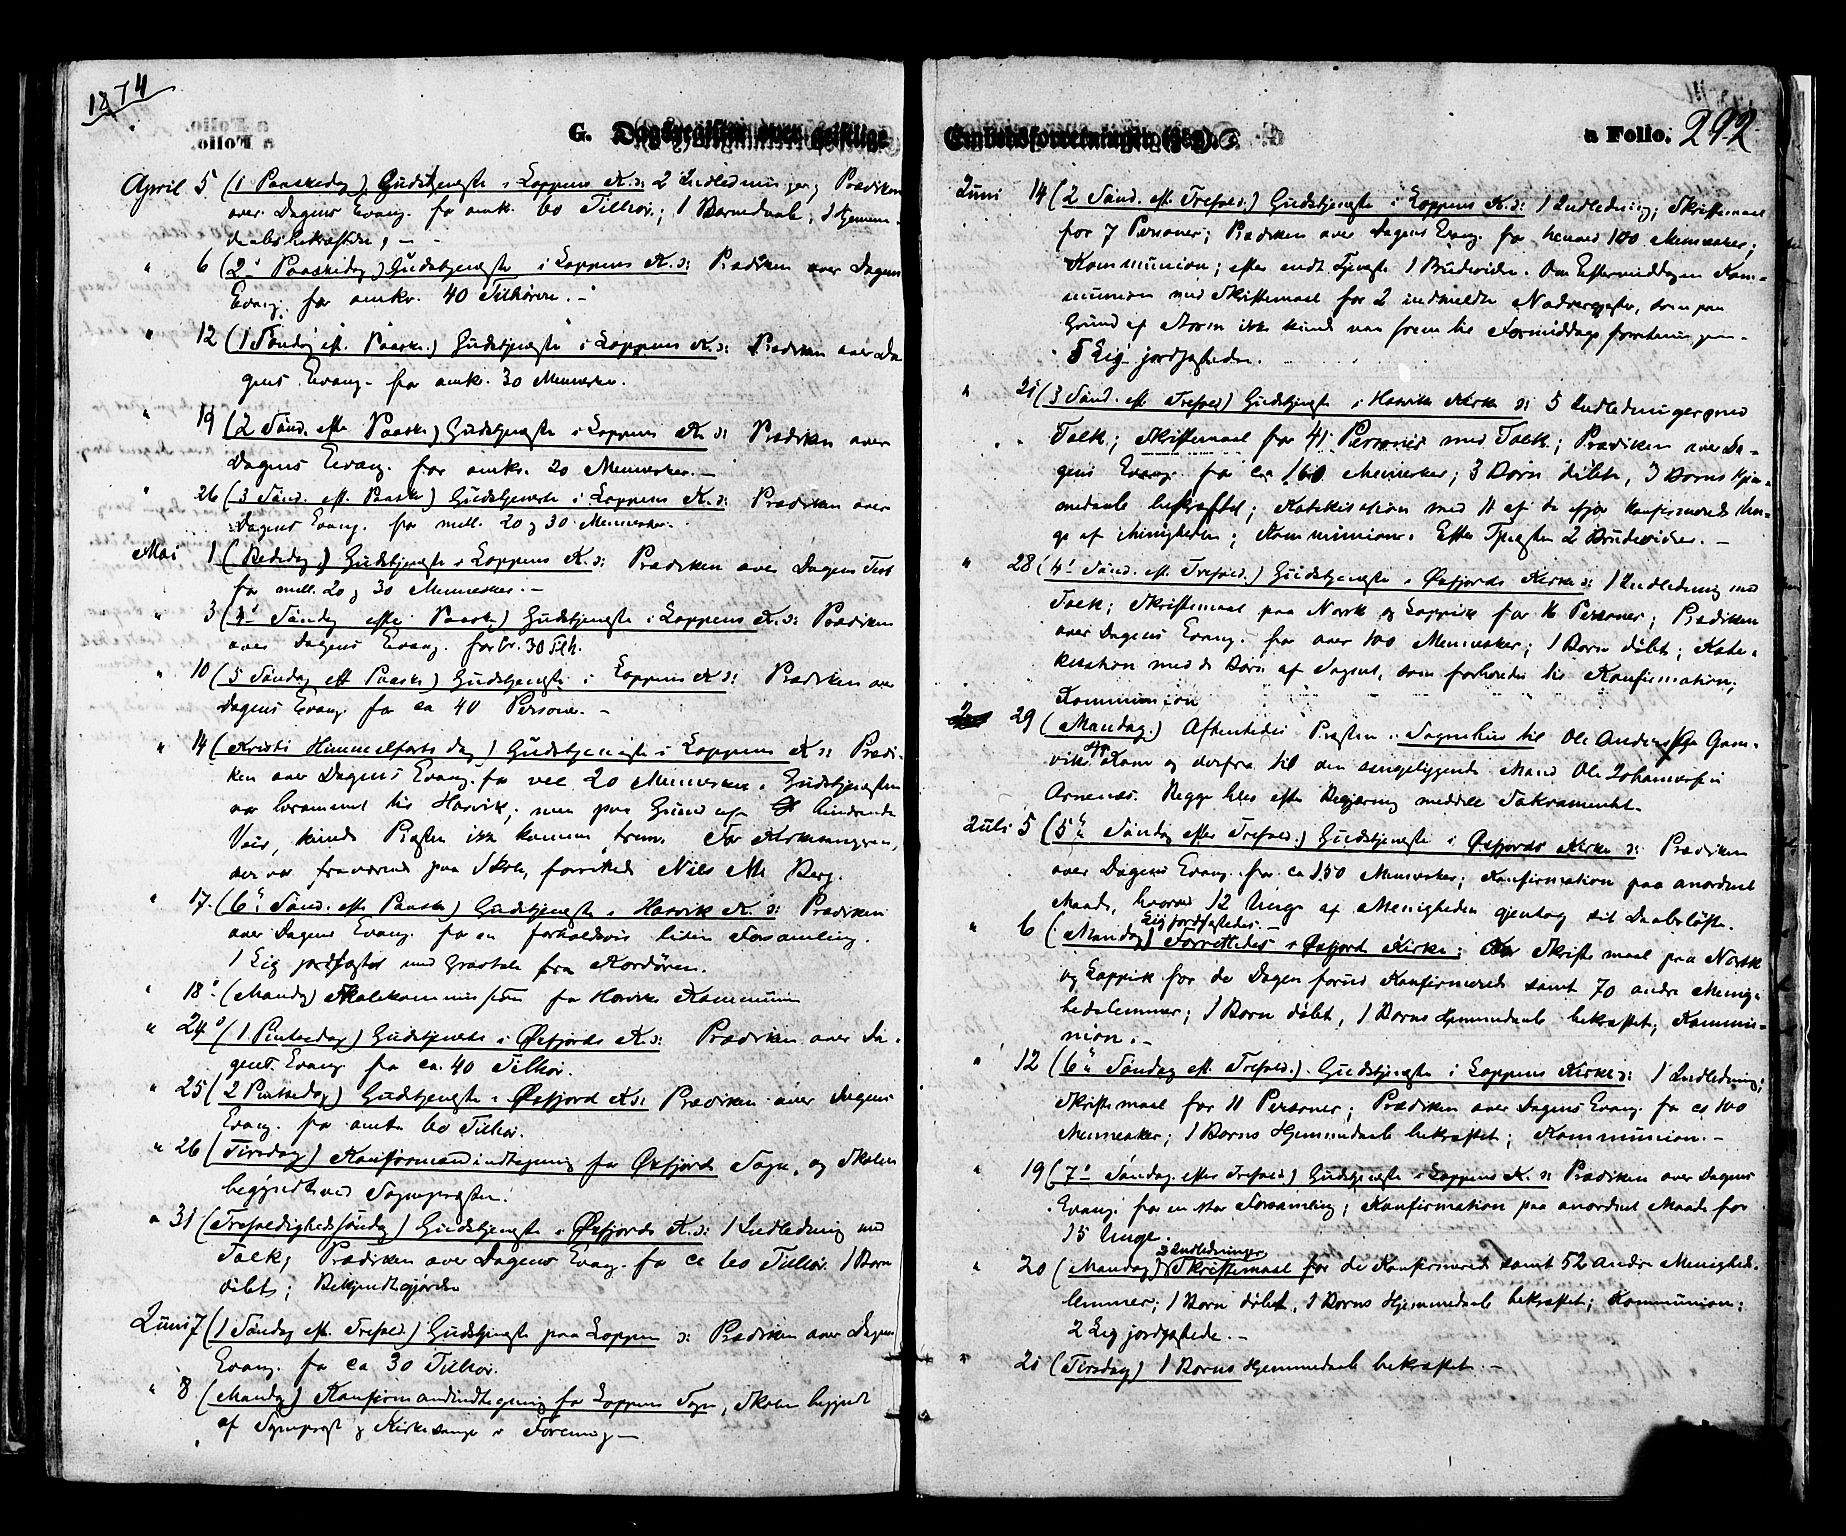 1874
G. Dagsregister over geistlige
April 5 (1 Paaskedag) Gudstjeneste i Loppens K. d: 2 Indledninger; Prædiken
over Dagens Evang. for omkr. 60 Tilhør.; 1 Barnedaab, 1 Hjemme-
daabs bekræftelse, -
" 6 (2 Paaskedag) Gudstjeneste i Loppens K. d: Prædiken over Dagens
Evang. for omkr. 40 Tilhørere. -
" 12 (1 Søndag eft. Paaske.) Gudstjeneste i Loppens K. d: Prædiken over Da-
gens Evang. for omkr. 30 Mennesker.
" 19 (2 Sønd. efter Paaske) Gudstjeneste i Loppens K. d: Prædiken over
Dagens Evang. for omkr. 20 Mennesker. -
" 26 (3 Sønd. eft. Paaske) Gudstjeneste i Loppens K. d: Prædiken over
Dagens Evang. for mell. 20 og 30 Mennesker.
Mai 1 (Bededag) Gudstjeneste i Loppens K. d: Prædiken over Dagens Text
for mell. 20 og 30 Mennesker. -
" 3 (4 Søndag efter Paaske) Gudstjeneste i Loppens K. d: Prædiken
over Dagens Evang. for br. 30 Tilh.
" 10 (5 Søndag eft Paaske) Gudstjeneste i Loppens K d: Prædiken over
Dagens Evang. for ca 40 Personer. -
" 14 (Kristi Himmelfarts dag) Gudstjeneste i Loppens K d: Prædi-
ken over Dagens Evang. for vel 20 Mennesker. Gudstjenesten
var berammet til Hasvik; men paa Grund af hindrende
Veir, kunde Præsten ikke komme frem. For Kirkesangeren,
der var fraværende paa Skole, forrettede Nils M. Berg.
" 17. (6 Sønd. eft. Paaske) Gudstjeneste i Hasvik K. d: Prædiken
over Dagens Evang. for en forholdsvis liden Forsamling.
1 Lig jordfæstet med Gravtale fra Kordøren.
" 18 (Mandag) Skolekommission for Hasviks Kommune
" 24 (1 Pintsedag) Gudstjeneste i Øxfjords K. d: Prædiken over Da-
gens Evang. for ca. 40 Tilhør.
" 25 (2 Pintsedag) Gudstjeneste i Øxfjord K d: Prædiken over Dagens
Evang. for omtr. 60 Tilhør.
" 26 (Tirsdag) Konfirmandindtegning for Øxfjord Sogn, og Skolen
begyndt ved Sognepræsten.
" 31 (Trefoldighedssøndag) Gudstjeneste i Øxfjords K. d: 1 Indledning med
Tolk; Prædiken over Dagens Evang. for ca 60 Tilhør. 1 Barn
døbt; Bekjendtgjørelse
Juni 7 (1 Søndag eft. Trefold.) Gudstjeneste paa Loppen d: Prædiken over Dagens
Evang. for ca 30 Tilhør.
" 8 (Mandag) Konfirmandindtegning for Loppens Sogn, Skolen begyndt
af Sognepræst og Kirkesanger i Forening -
Embedsforretninger (og).
a Folio. 292
Juni 14 (2 Sønd. eft. Trefold.) Gudstjeneste i Loppens K. d: 1 Indledning; Skriftemaal
for 7 Personer; Prædiken over Dagens Evang. for henved 100 Mennesker;
Kommunion; efter endt Tjeneste 1 Brudevielse. Om Eftermiddagen Kom-
munion med Skriftemaal for 2 indmeldte Nadvergjester, som paa
Grund af Storm ikke kunde naa frem til Formiddags forretningen.
5 Lig jordfæstede.
" 21 (3 Sønd. eft. Trefold) Gudstjeneste i Hasvik Kirke d: 5 Indledninger med
Tolk; Skriftemaal for 41 Personer med Tolk; Prædiken over Da-
gens Evang. for ca 160 Mennesker; 3 Børn døbte, 3 Børns Hjem-
medaab bekræftet; Katekisation med 11 af de ifjor konfirmerede Un-
ge af Menigheden; Kommunion. Efter Tjenesten 2 Brudevielser. -
" 28 (4 Sønd. eft. Trefold.) Gudstjeneste i Øxfjords Kirke d: 1 Indledning med
Tolk; Skriftemaal paa Norsk og Lappisk for 16 Personer; Prædiken
over Dagens Evang. for over 100 Mennesker; 1 Barn døbt; Kate-
kisation med de Børn af Sognet, som forberedes til Konfirmation;
Kommunion
29 (Mandag.) Afhentedes Præsten i Sognebud til Ole Anders Gam-
vik Kone og derfra til den sengeliggende Mand Ole Johannesen
Arnenæs. Begge blev efter Begjæring meddelt Sakramentet.
Juli 5 (5 Søndag efter Trefold.) Gudstjeneste i Øxfjords Kirke d: Prædiken
over Dagens Evang. for ca 150 Mennesker; Konfirmation paa anordnet
Maade, hvorved 12 Unge af Menigheden gjentog sit Daabsløfte.
Lig jordfæstedes. -
" 6 (Mandag) Forrettedes i Øxfjord Kirke; Skriftemaal paa Norsk
og Lappisk for de Dagen forud Konfirmerede samt 70 andre Menig-
hedslemmer; 1 Barn døbt, 1 Barns Hjemmedaab bekræftet; Kommu-
nion. -
" 12 (6 Søndag eft. Trefold.) Gudstjeneste i Loppens Kirke d: 1 Indledning;
Skriftemaal for 11 Personer; Prædiken over Dagens Evang. for ca 100
Mennesker; 1 Barns Hjemmedaab bekræftet; Kommunion. -
" 19 (7 Søndag efter Trefold.) Gudstjeneste i Loppens K. d: Prædiken over Dagens
Evang. for en stor Forsamling; Konfirmation paa anordnet Maade for
15 Unge.
2 Indledninger
" 20 (Mandag) Skriftemaal for de Konfirmerede samt 52 andre Menigheds-
lemmer; 1 Barn døbt, 1 Barns Hjemmedaab bekræftet; Kommunion;
2 Lig jordfæstede. -
" 21 (Tirsdag) 1 Barns Hjemmedaab bekræftet. -